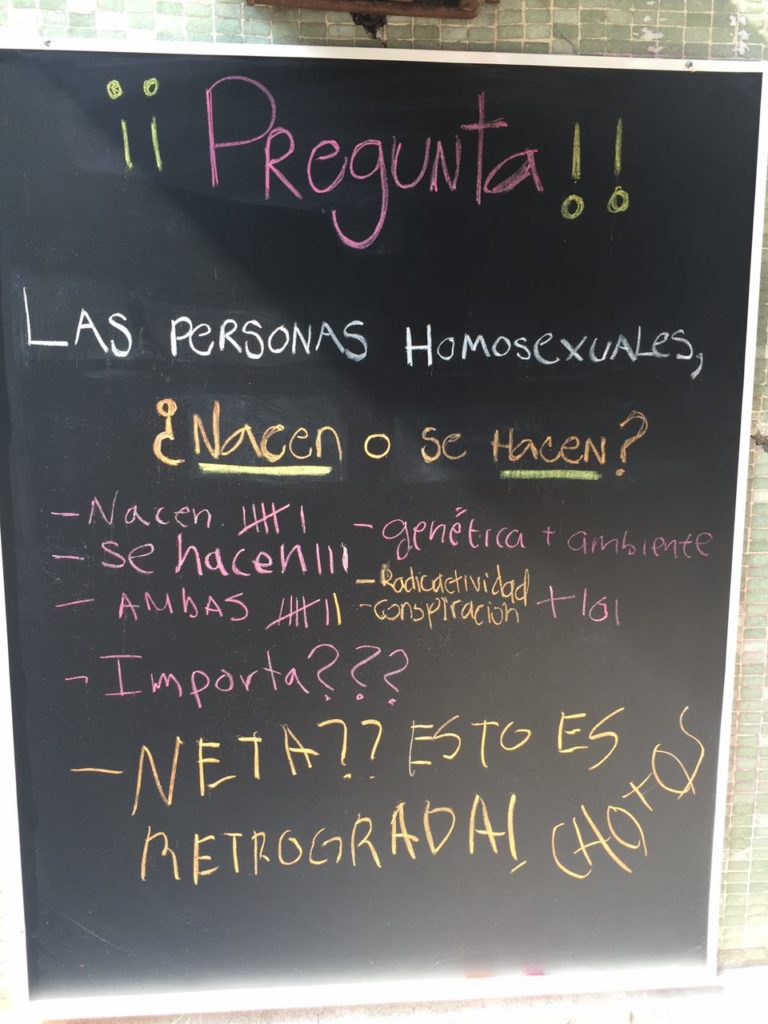 ¡¡Pregunta!!
LAS PERSONAS HOMOSEXUALES,
¿Nacen o se Hacen?
- Nacen
- se hacen
- AMBAS
- genética + ambiente
- Radioactividad
- conspiración + lol
- Importa???
- NETA?? ESTO ES
RETROGRADA!